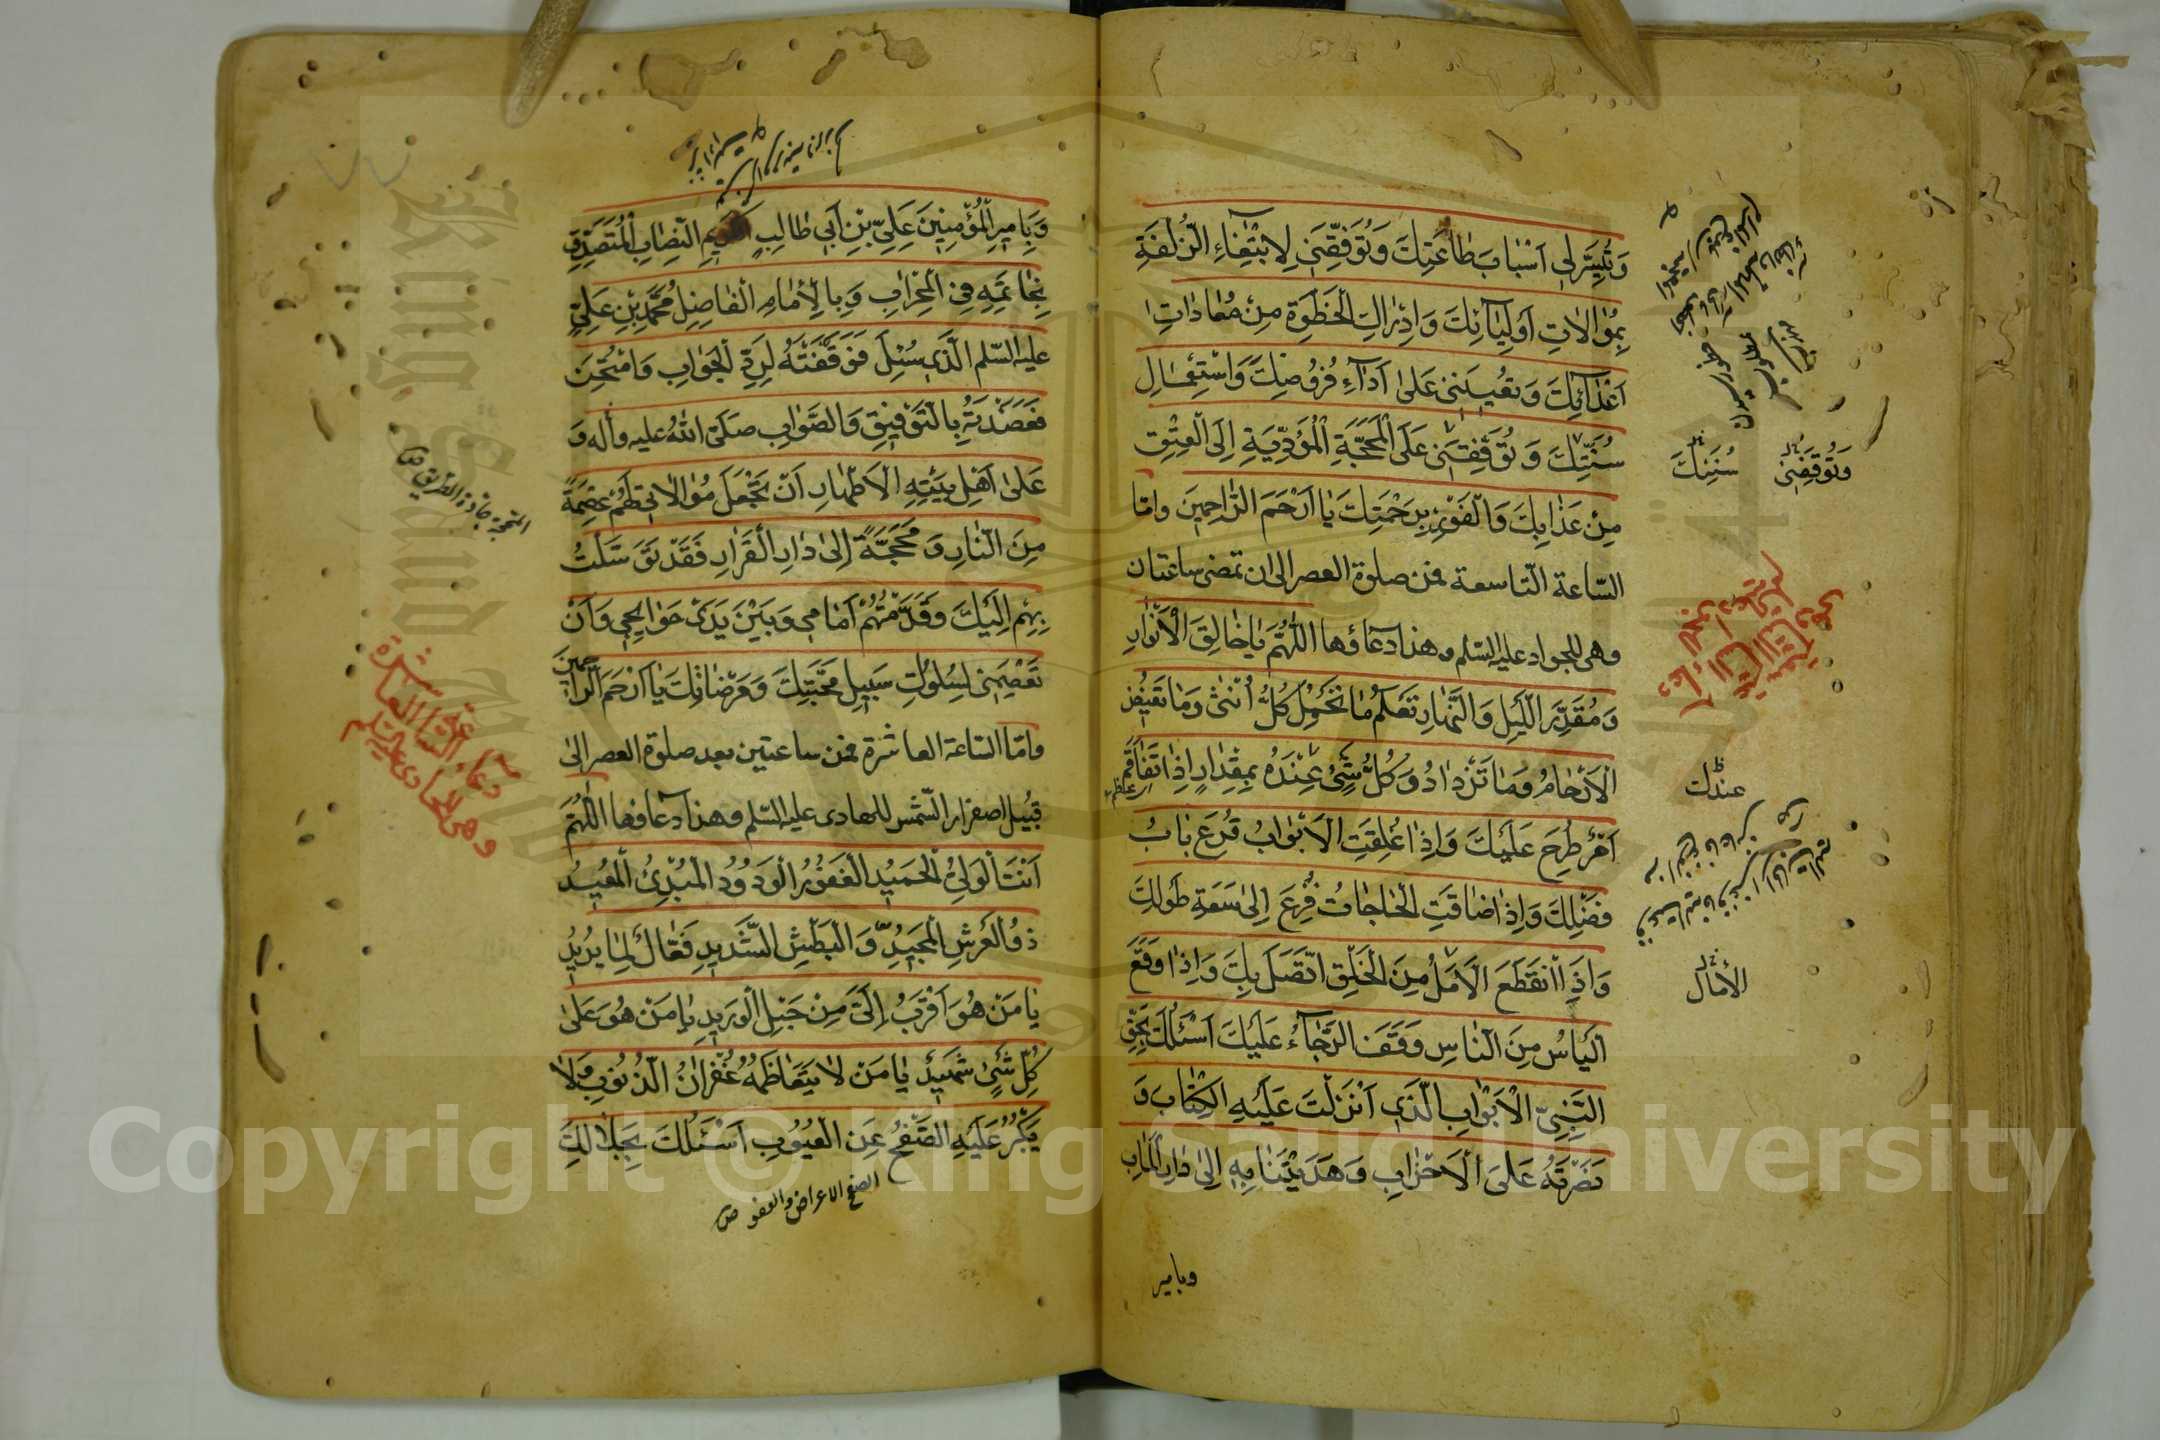 وَتُيَسِّرَ لِي اَسْبَابَ طَاعَتِكَ وَتُوَفِّقَنِي لِابْتِغَاءِ الزُّلْفَةِ
بِمُوَالَاتِ اَوْلِيَآئِكَ وَاِدْرَاكِ الْحَظْوَةِ مِنْ مُعَادَاتِ
اَعْدَآئِكَ وَتُعِينَنِي عَلَى اَدَآءِ فُرُوضِكَ وَاسْتِعْمَالِ
سُنَّتِكَ وَتُوَقِّفَنِي عَلَى الْمَحَجَّةِ الْمُؤَدِّيَةِ اِلَى الْعِتْقِ
مِنْ عَذَابِكَ وَالْفَوْزِ بِرَحْمَتِكَ يَا اَرْحَمَ الرَّاحِمِينَ واما
السّاعة التّاسعة فمن صلوة العصر الى ان تمضى ساعتان
وهى للجواد عليه السّلم وهذا دعاؤها اَللّٰهُمَّ يَا خَالِقَ الْاَنْوَارِ
وَمُقَدِّرَ اللَّيْلِ وَالنَّهَارِ تَعْلَمُ مَا تَحْمِلُ كُلُّ اُنْثَى وَمَا تَغِيضُ
الْاَرْحَامُ وَمَا تَزْدَادُ وَكُلُّ شَيْءٍ عِنْدَهُ بِمِقْدَارٍ اِذَا تَفَاقَمَ
اَمْرٌ طُرِحَ عَلَيْكَ وَاِذَا غُلِّقَتِ الْاَبْوَابُ قُرِعَ بَابُ
فَضْلِكَ وَاِذَا ضَاقَتِ الْحَاجَاتُ فُزِعَ اِلَى سَعَةِ طَولِكَ
وَاِذَا انْقَطَعَ الْاَمَلُ مِنَ الْخَلْقِ اتَّصَلَ بِكَ وَاِذَا وَقَعَ
الْيَاْسُ مِنَ النَّاسِ وَقَفَ الرَّجَآءُ عَلَيْكَ اَسْئَلُكَ بِحَقِّ
النَّبِيِّ الْاَوَّابِ الَّذِي اَنْزَلْتَ عَلَيْهِ الْكِتَابَ وَ
نَصَرْتَهُ عَلَى الْاَحْزَابِ وَهَدَيْتَنَا بِهِ اِلَى دَارِ الْمَآبِ
وبامير
وَتُوَقِّفَنِي
سُنَنِكَ
عندك
الآمال
وَبِاَمِيرِ الْمُؤْمِنِينَ عَلِيِّ بْنِ اَبِي طَالِبٍ الْكَرِيمِ النِّصَابِ الْمُتَصَدِّقِ
بِخَاتَمِهِ فِي الْمِحْرَابِ وَبِالْاِمَامِ الْفَاضِلِ مُحَمَّدِ بْنِ عَلِيٍّ
عليه السّلم الَّذِي سُئِلَ فَوَفَّقْتَهُ لِرَدِّ الْجَوَابِ وَامْتُحِنَ
فَعَضَدْتَهُ بِالتَّوْفِيقِ وَالصَّوَابِ صَلَّى اللّٰهُ عليه وآله وَ
عَلَى اَهْلِ بَيْتِهِ الْاَطْهَارِ اَنْ تَجْعَلَ مُوَالَاتِي لَهُمْ عِصْمَةً
مِنَ النَّارِ وَمَحَجَّةً اِلَى دَارِ الْقَرَارِ فَقَدْ تَوَسَّلْتُ
بِهِمْ اِلَيْكَ وَقَدَّمْتُهُمْ اَمَامِي وَبَيْنَ يَدَيْ حَوَائِجِي وَاَنْ
تَعْصِمَنِي لِسُلُوكِ سَبِيلِ مَحَبَّتِكَ وَمَرْضَاتِكَ يَا اَرْحَمَ الرَّاحِمِينَ
واما السّاعة العاشرة فمن ساعتين بعد صلوة العصر الى
قبيل اصفرار الشّمس للهادى عليه السّلم وهذا دعاؤها اَللّٰهُمَّ
اَنْتَ الْوَلِيُّ الْحَمِيدُ الْغَفُورُ الْوَدُودُ الْمُبْدِئُ الْمُعِيدُ
ذُو الْعَرْشِ الْمَجِيدِ وَالْبَطْشِ الشَّدِيدِ فَعَّالٌ لِمَا يُرِيدُ
يَا مَنْ هُوَ اَقْرَبُ اِلَيَّ مِنْ حَبْلِ الْوَرِيدِ يَا مَنْ هُوَ عَلَى
كُلِّ شَيْءٍ شَهِيدٌ يَا مَنْ لَا يَتَعَاظَمُهُ غُفْرَانُ الذُّنُوبِ وَلَا
يَكْبُرُ عَلَيْهِ الصَّفْحُ عَنِ الْعُيُوبِ اَسْئَلُكَ بِجَلَالِكَ
الصفح الاعراض والعفو ص
المحجة جادة الطريق ص
دعاء الساعة العاشرة
وهى للهادى عليه السلم
Copyright © King Saud University